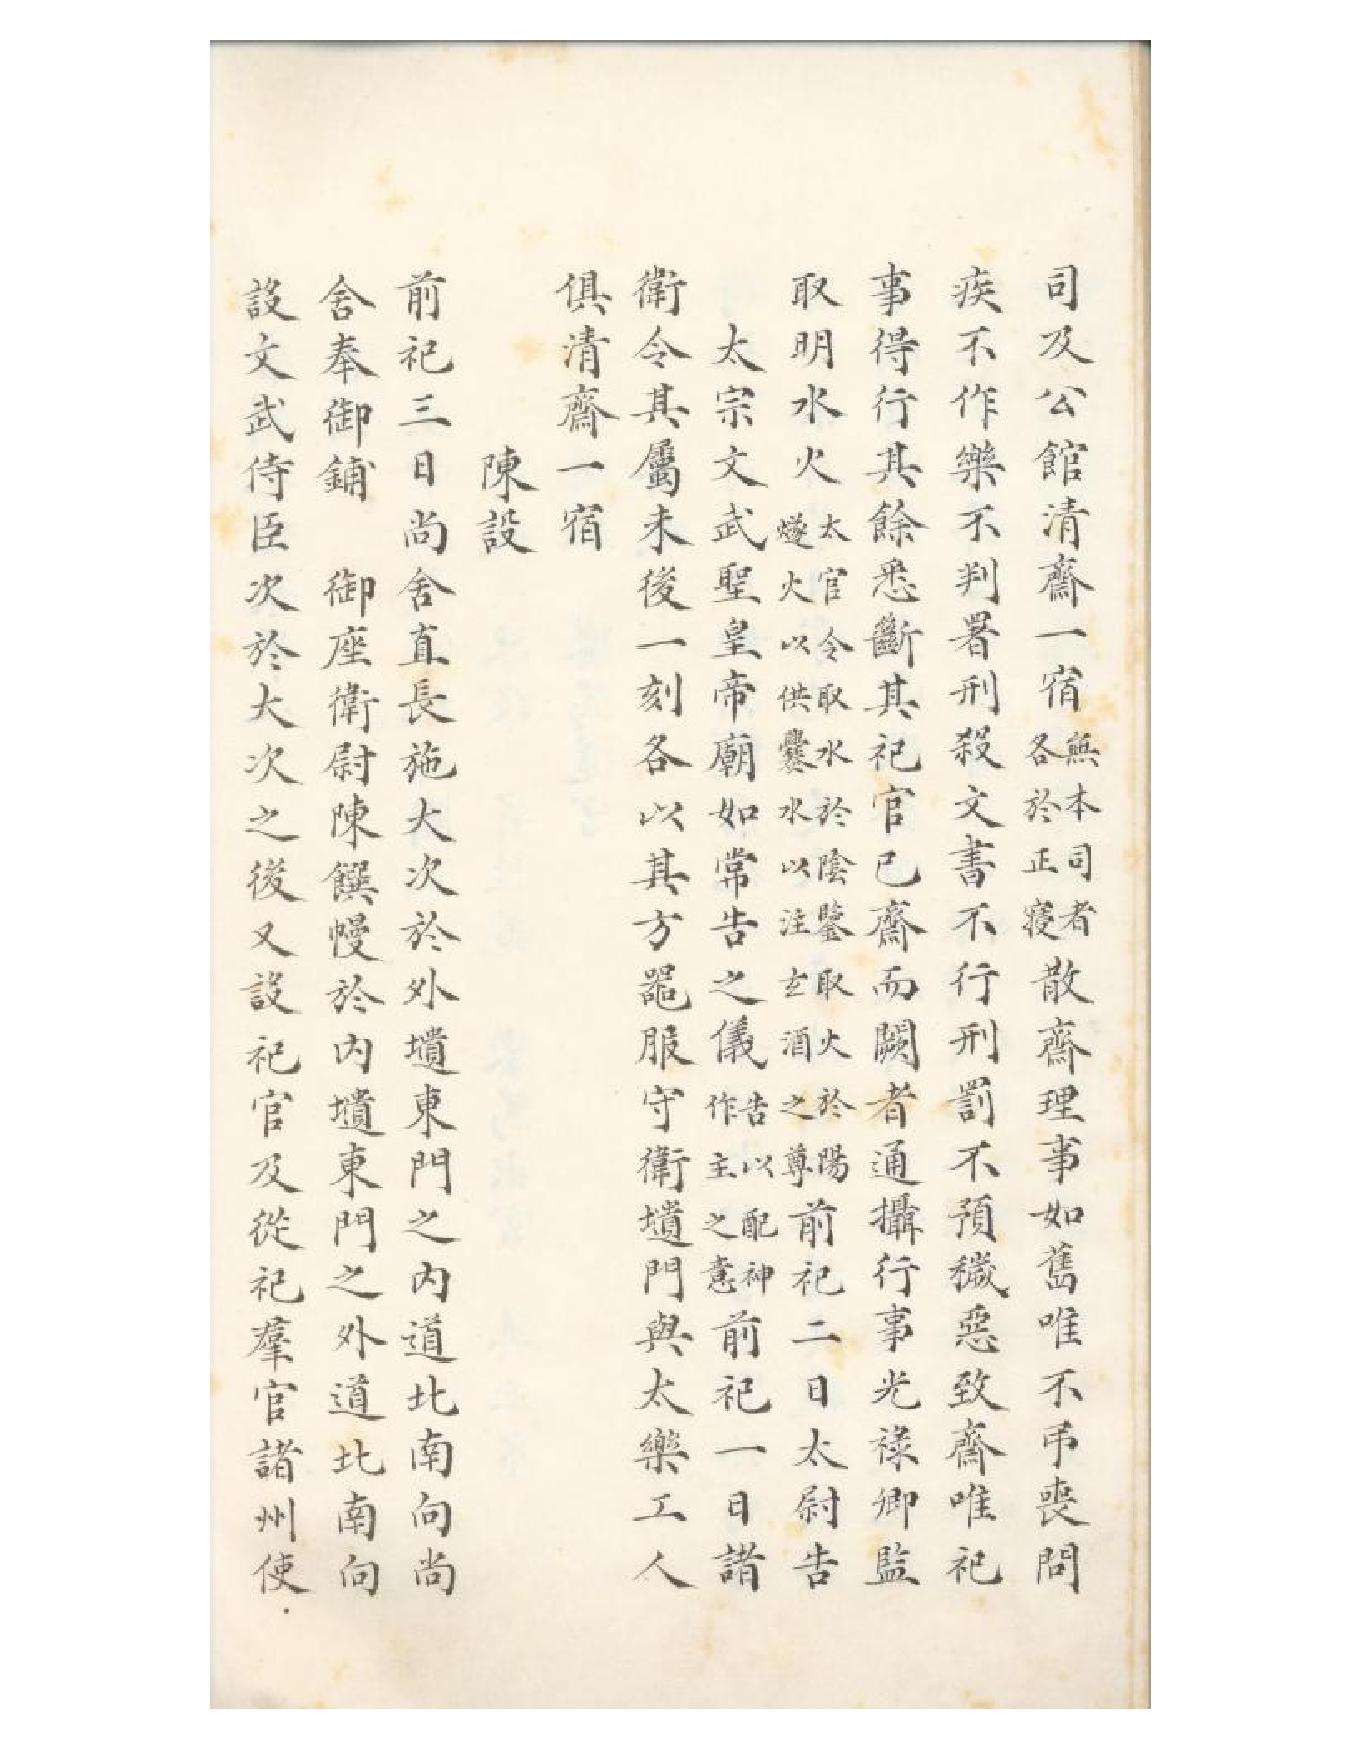 司及公館清齋一宿無本司者各於正寢散齋理事如舊唯不弔喪問
疾不作樂不判署刑殺文書不行刑罰不預穢惡致齋唯祀
事得行其餘悉斷其祀官已齋而闕者通攝行事光祿卿監
取明水火太官令取水於陰鑒取火於陽燧火以供爨水以注玄酒之尊前祀二日太尉告
太宗文武聖皇帝廟如常告之儀告以配神作主之意前祀一日諸
衛令其屬未後一刻各以其方器服守衛壝門與太樂工人
俱清齋一宿
陳設
前祀三日尚舍直長施大次於外壝東門之内道北南向尚
舍奉御鋪 御座衛尉陳饌幔於内壝東門之外道北南向
設文武侍臣次於大次之後又設祀官及從祀羣官諸州使